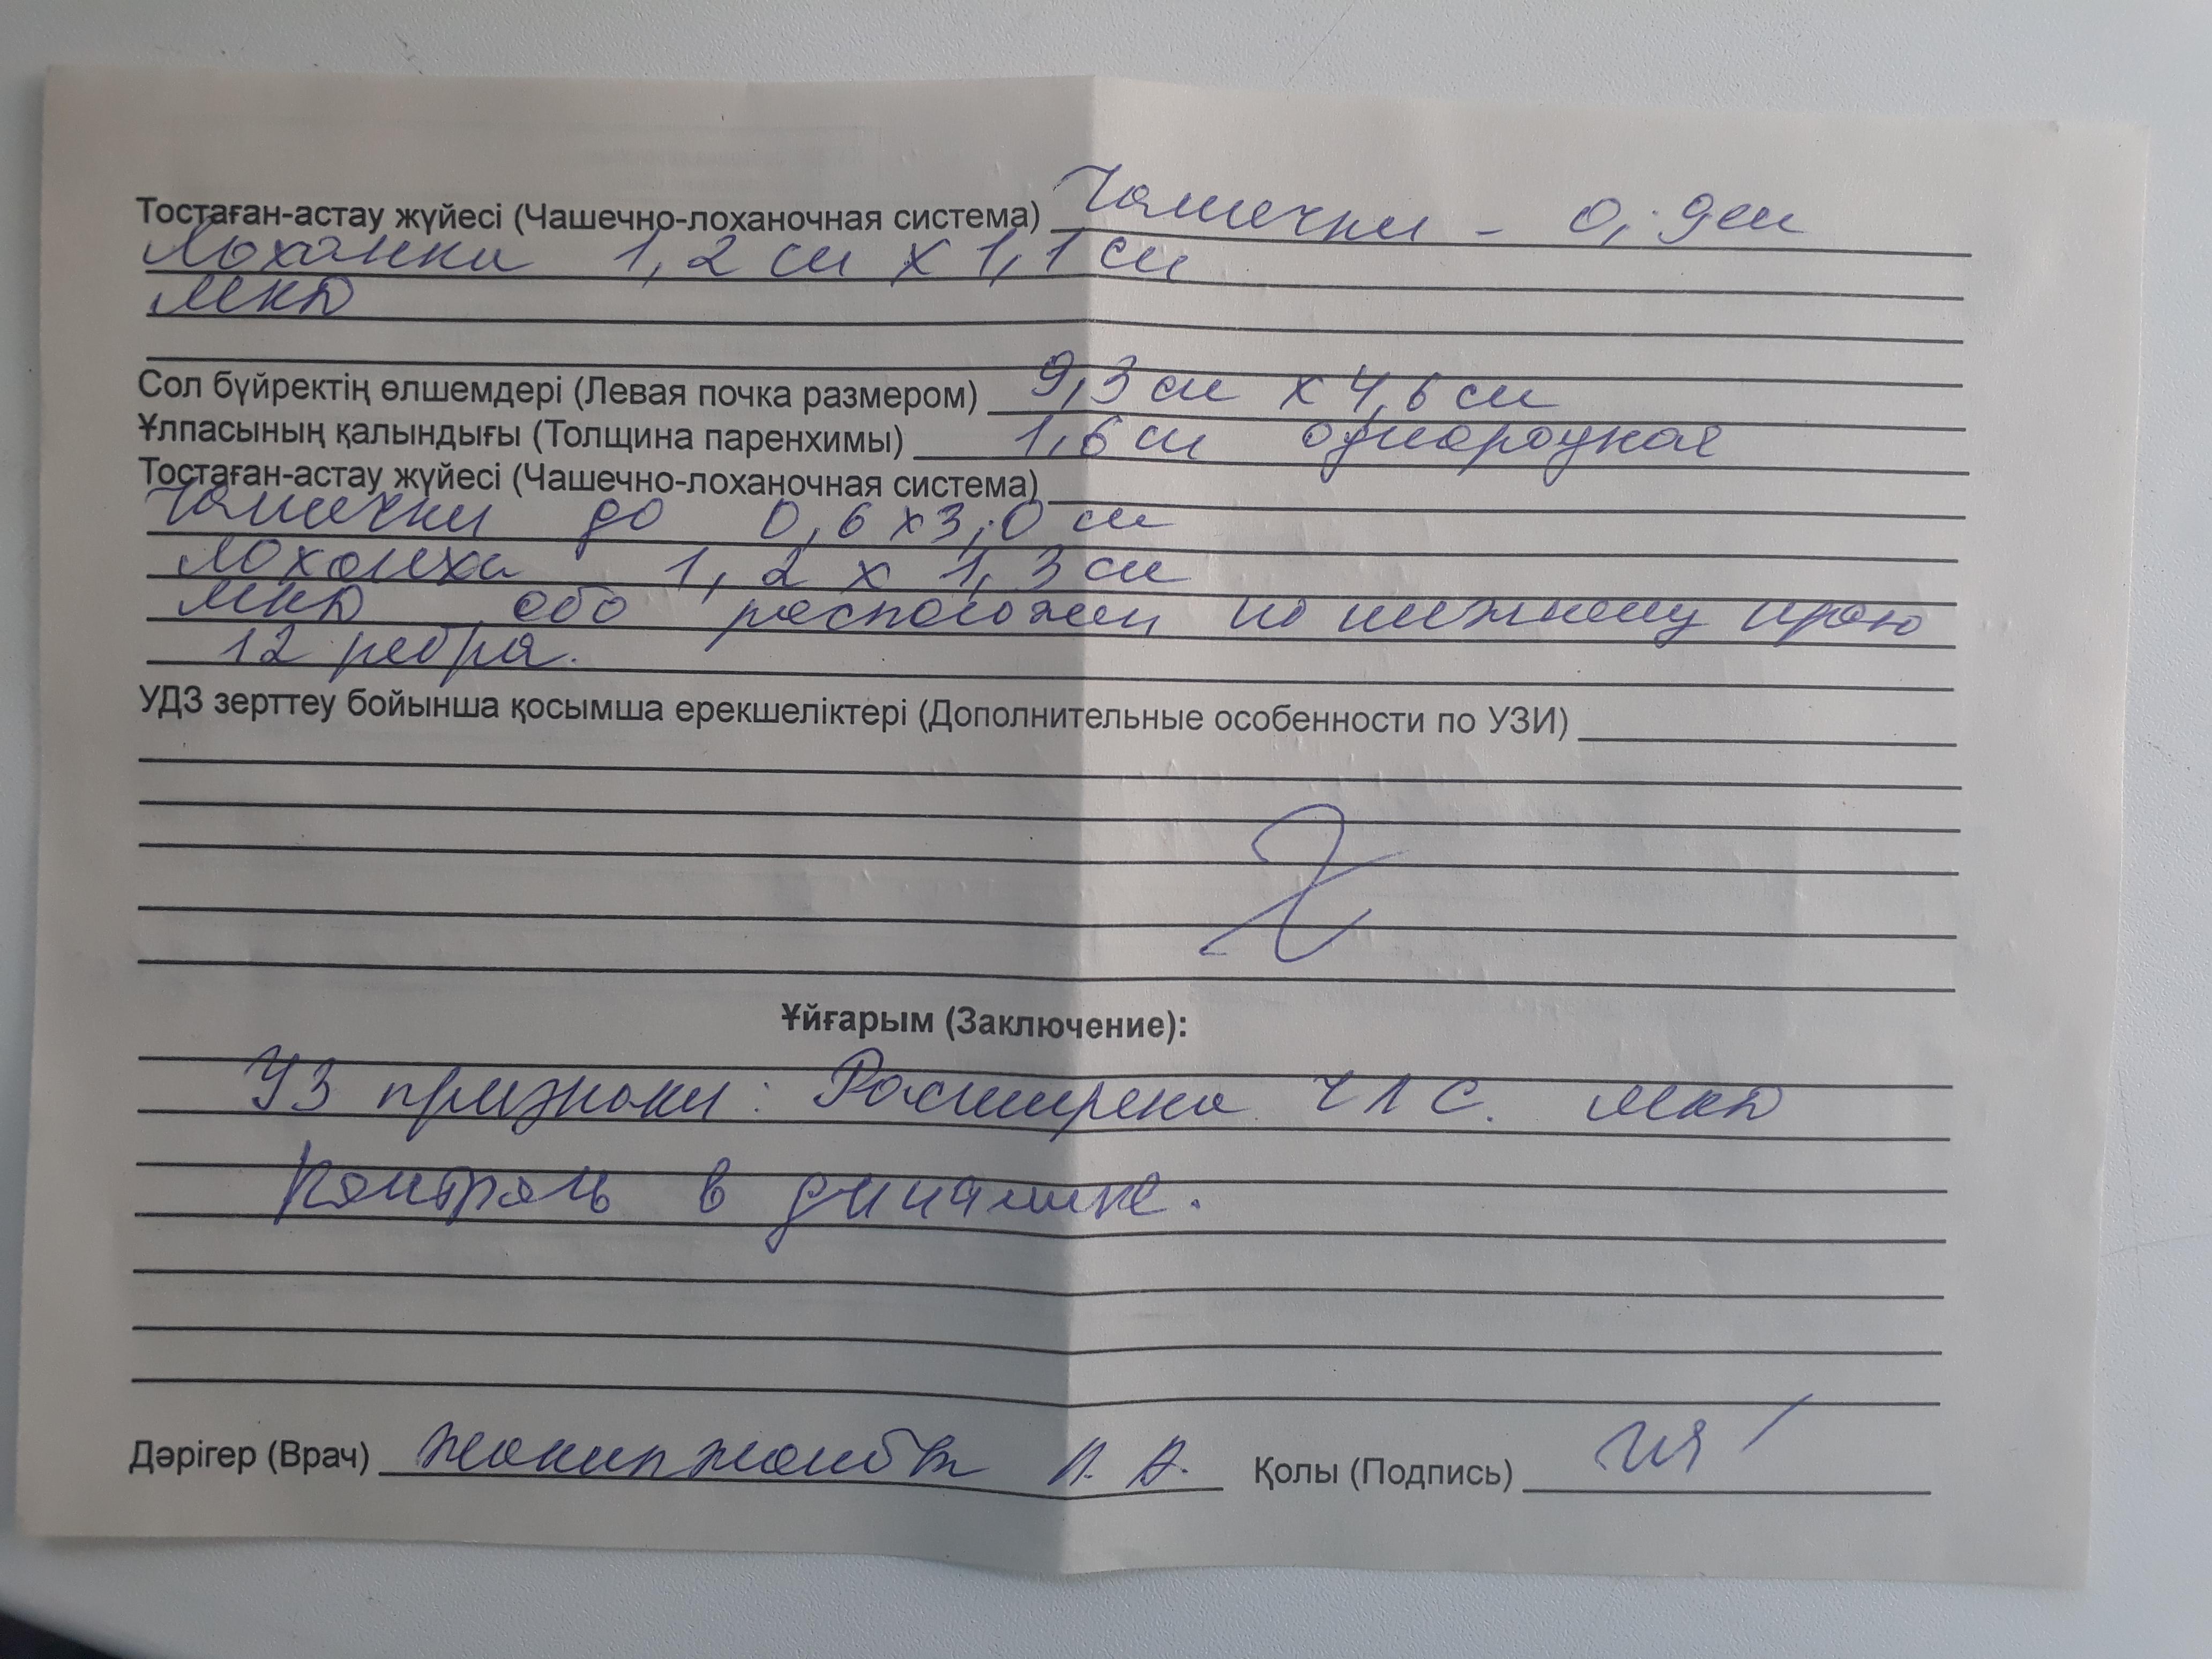 Тостаған-астау жүйесі (Чашечно-лоханочная система) Чашечки - 0,9см
Лоханки 1,2 см х 1,1 см
МКД
Сол бүйректің өлшемдері (Левая почка размером) 9,3 см х 4,6 см
Ұлпасының қалыңдығы (Толщина паренхимы) 1,6 см однородная
Тостаған-астау жүйесі (Чашечно-лоханочная система)
Чашечки до 0,6 х 3,0 см
Лоханка 1,2 х 1,3 см
МКД обо расположен по нижнему краю
12 ребра.
УДЗ зерттеу бойынша қосымша ерекшеліктері (Дополнительные особенности по УЗИ)
Ұйғарым (Заключение):
УЗ признаки: Расширена ЧЛС. МКД
Контроль в динамике.
Дәрігер (Врач) А. Қолы (Подпись)